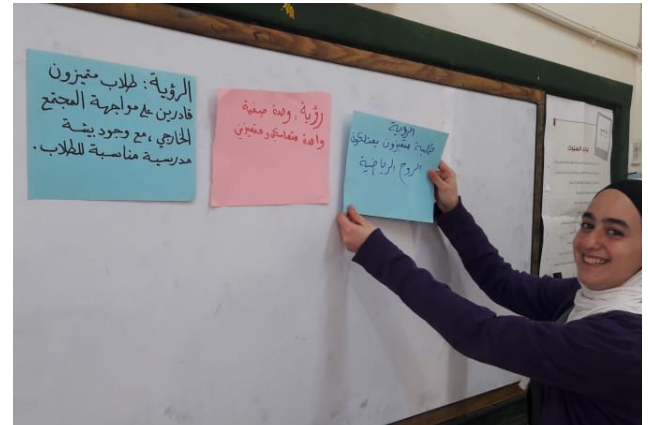 الرؤية: طلاب متميزون
قادرين على مواجهة المجتمع
الخارجي، مع وجود بيئة
مدرسية مناسبة للطلاب.
رؤية: وحدة صفية
واحدة متماسكين ومتميزين
الرؤية
طلبة متميزون يمتلكون
الروح الرياضية